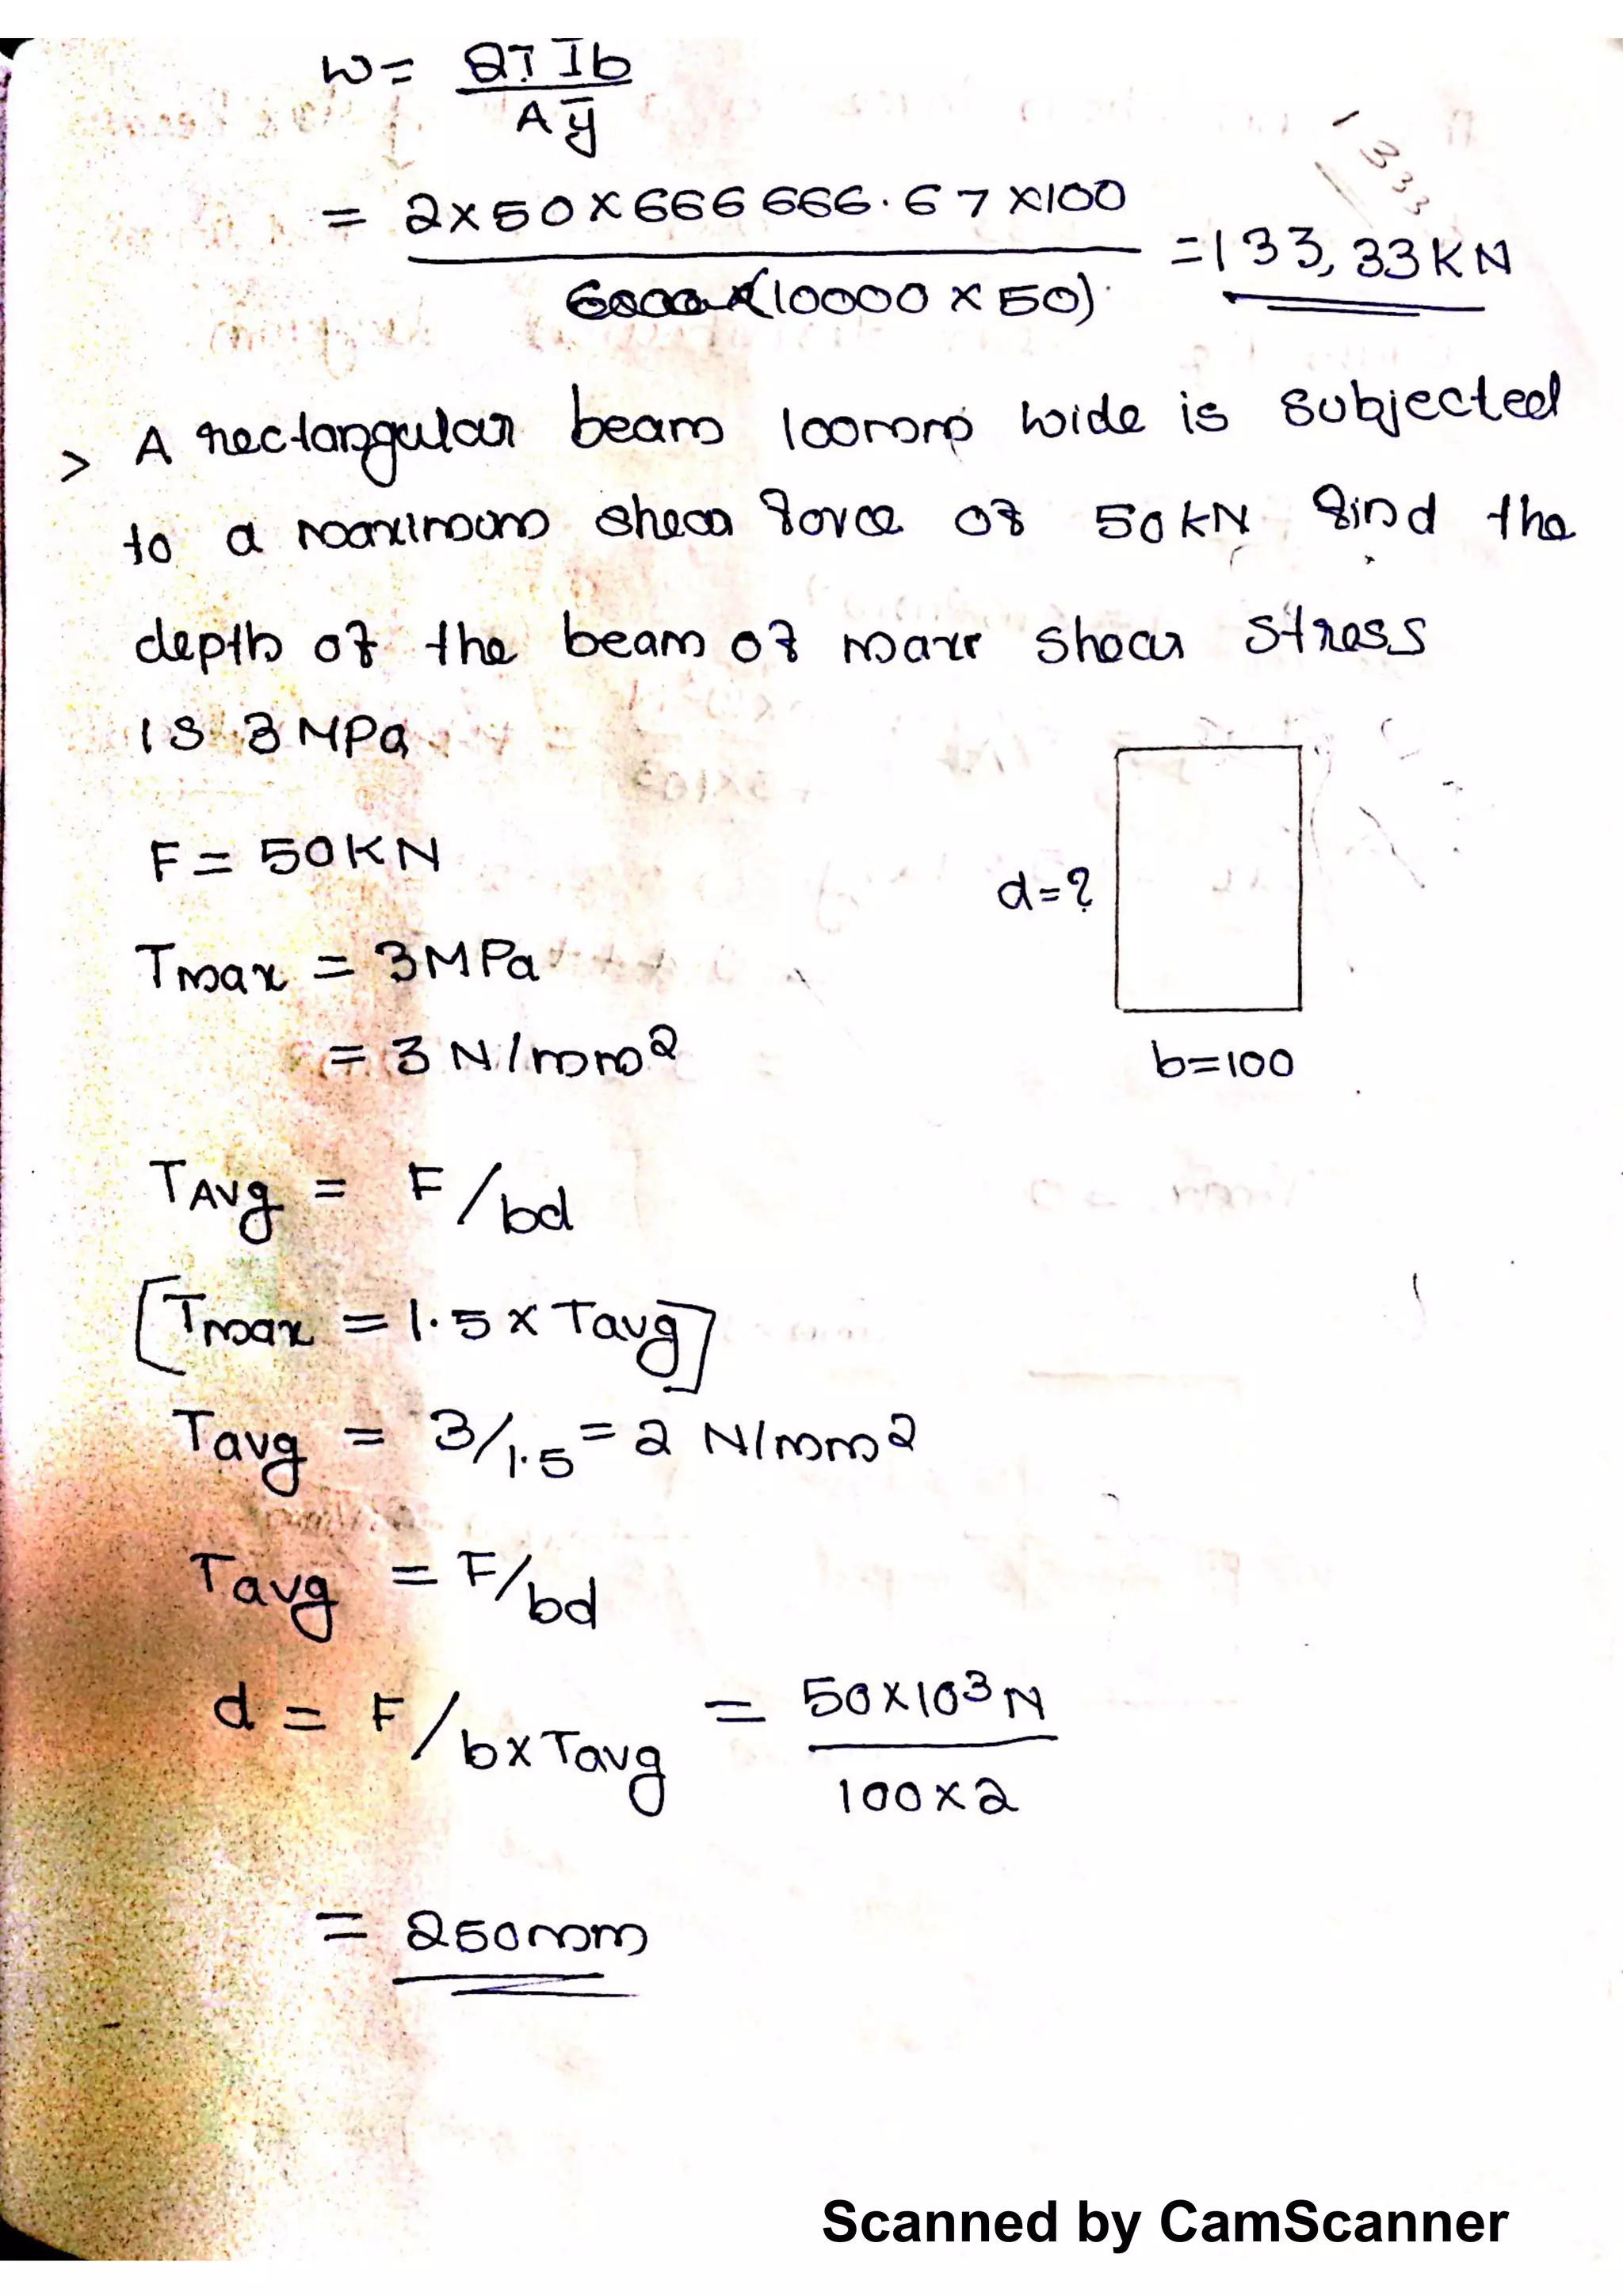 w = 2τ I b
A ȳ
= 2×50×666 666.67 ×100
(10000 × 50)
= 133,33 KN
1333
> A rectangular beam 100mm wide is subjected
to a maximum shear force of 50 kN find the
depth of the beam of maxr shear stress
is 3 MPa
F = 50KN
d=?
Tmax = 3MPa
= 3 N/mm2
b=100
TAvg = F/bd
[Tmax = 1.5 × Tavg]
Tavg = 3/1.5 = 2 N/mm2
Tavg = F/bd
d = F/b×Tavg = 50×10³N
100×2
= 250mm
Scanned by CamScanner